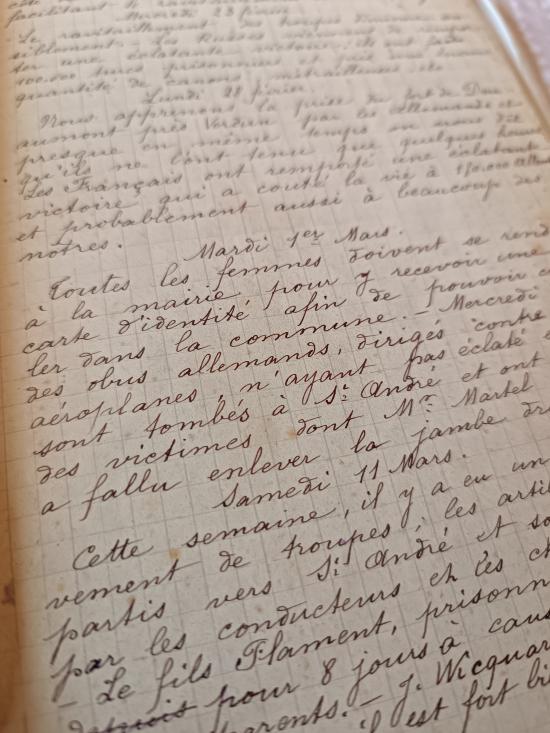 facilitant le
Mercredi 23
Le ravitaillement des troupes
siblement. - Les Russes viennent de
ter une éclatante victoire; ils ont fait
100.000 turcs prisonniers et pris une
quantité de canons, mitrailleuses, etc.
Lundi 28 février.
Nous apprenons la prise du fort de Dou
aumont près Verdun par les allemands et
presque en même temps on nous dit
qu'ils ne l'ont tenu que quelques heures
Les Français ont remporté une éclatante
victoire qui a couté la vie à 150.000 allem
et probablement aussi à beaucoup des
nôtres.
Mardi 1er Mars.
Toutes les femmes doivent se rend
à la mairie pour y recevoir une
carte d'identité afin de pouvoir c
ler dans la commune. - Mercredi
des obus allemands, dirigés contre
aéroplanes, n'ayant pas éclaté
sont tombés à St André et ont
des victimes dont Mr Martel
a fallu enlever la jambe dro
Samedi 11 Mars.
Cette semaine, il y a eu un
vement de troupes; les artil
partis vers St André et so
par les conducteurs et les ch
- Le fils Flament, prisonn
depuis pour 8 jours à caus
parents. - J. Wicquar
il est fort bi